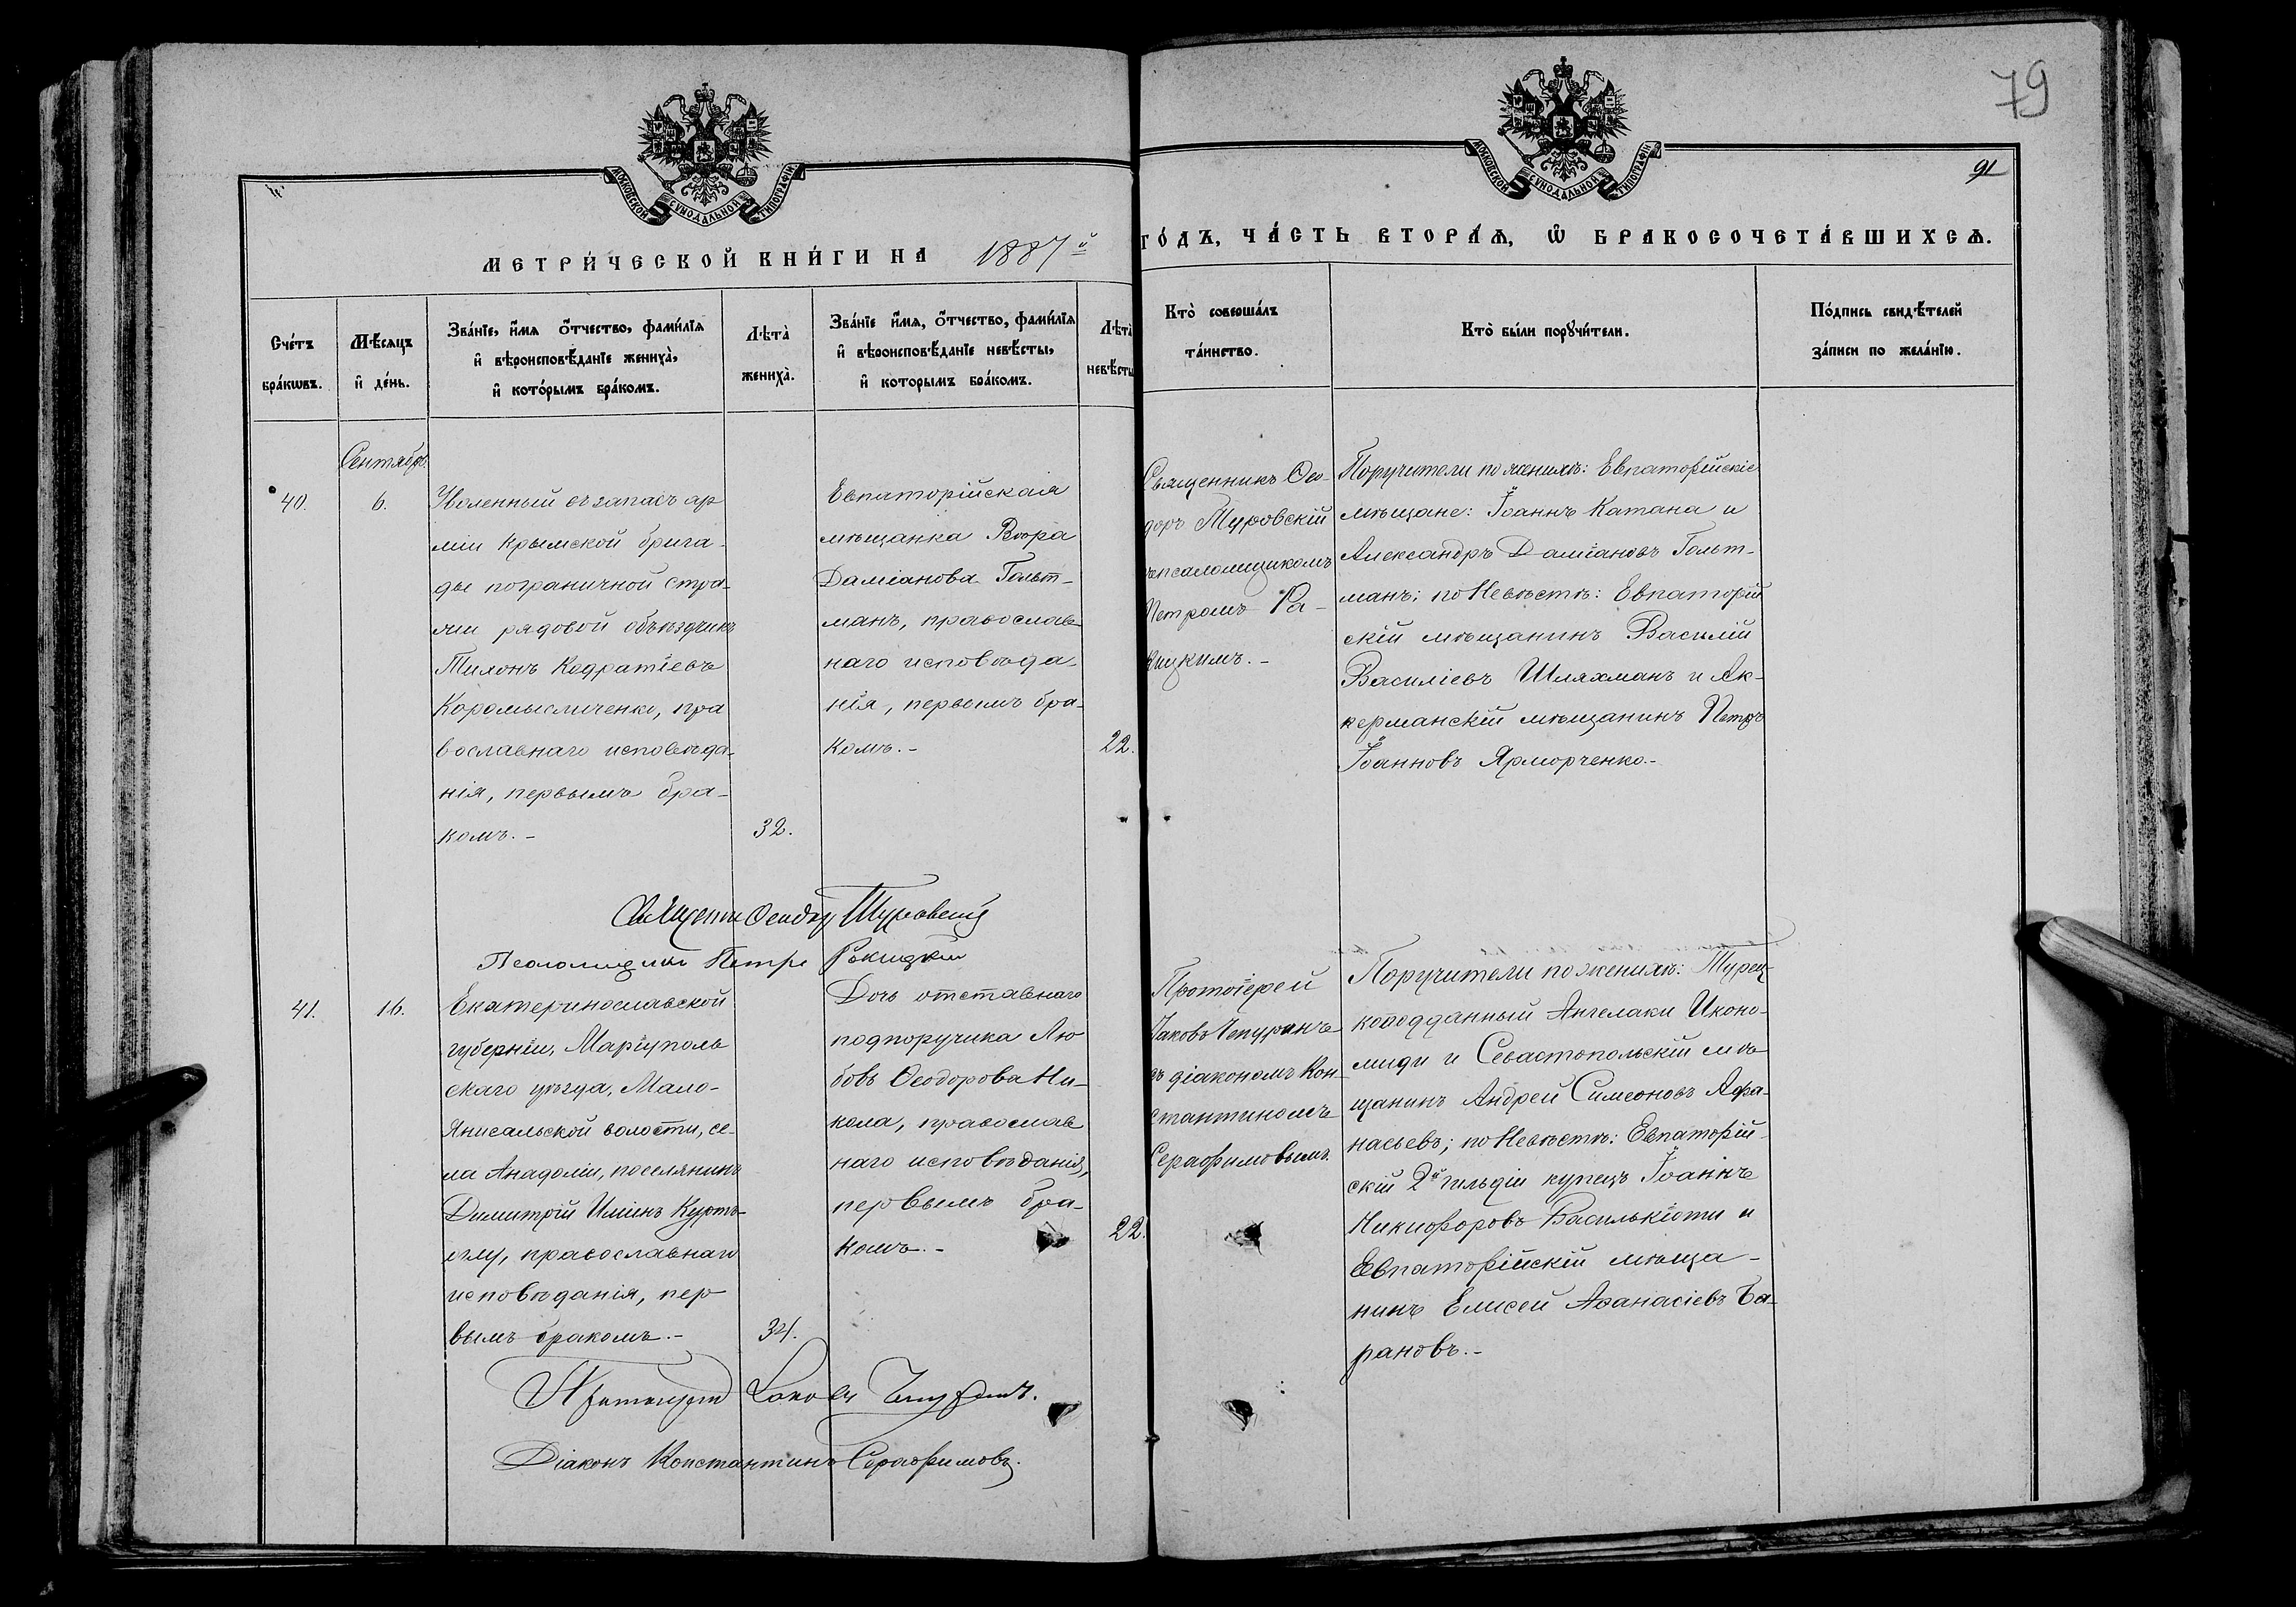 79
91
МОСКОВСКОЙ СѴНОДАЛЬНОЙ ТИПОГРАФІИ
МОСКОВСКОЙ СѴНОДАЛЬНОЙ ТИПОГРАФІИ
МЕТРИ́ЧЕСКОЙ КНИ́ГИ НА 1887й
ГО́ДЪ, ЧА́СТЬ ВТОРА́Ѧ, Ѽ БРАКОСОЧЕТА́ВШИХСѦ.
Сче́тъ
бра́кѡвъ.
Мѣ́сѧцъ
и҆ де́нь.
Зва́нїе, и҆́мѧ ѻ҆́тчество, фами́лїѧ
и҆ вѣроисповѣ́данїе жениха̀,
и҆ кото́рымъ бра́комъ.
Лѣта̀
жениха̀.
Зва́нїе и҆́мѧ, ѻ҆́тчество, фами́лїѧ
и҆ вѣроисповѣ́данїе невѣ́сты,
и҆ которымъ бра́комъ.
Лѣта̀
невѣ́сты
Кто̀ соверша́лъ
та́инство.
Кто̀ бы́ли порꙋчи́тели.
По́дпись свидѣ́телей
за́писи по жела́нїю.
Сентябрь.
40.
6.
Уволенный въ запасъ ар
міи Крымской брига-
ды пограничной стра-
жи рядовой объѣздчикъ
Тихонъ Кодратіевъ
Коромысличенко, пра
вославнаго исповѣда-
нія, первымъ бра-
комъ.-
32.
Евпаторійская
мѣщанка Вѣра
Даміанова Гольт-
манъ, православ-
наго исповѣда-
нія, первымъ бра-
комъ.-
22.
Священникъ Ѳео-
доръ Туровскій
съ псаломщикомъ
Петромъ Ра-
кицкимъ.-
Поручители по женихѣ: Евпаторійскіе
мѣщане: Іоаннъ Катана и
Александръ Даміановъ Гольт-
манъ; по Невѣстѣ: Евпаторій
скій мѣщанинъ Василій
Василіевъ Шляхманъ и Ак-
керманскій мѣщанинъ Петръ
Іоанновъ Ярморченко.-
Священникъ Ѳеодоръ Туровскій
Псаломщикъ Петръ Ракицкій
41.
16.
Екатеринославской
губерніи, Маріуполь
скаго уѣзда, Мало-
Янисальской волости, се-
ла Анадоліи, поселянинъ
Димитрій Иліинъ Куртъ-
оглу, православнаго
исповѣданія, пер
вымъ бракомъ.-
34.
Дочь отставнаго
подпоручика Лю
бовь Ѳеодорова Ни-
кола, православ
наго исповѣданія,
первымъ бра-
комъ.-
22.
Протоіерей
Іаковъ Чепуринъ
съ діакономъ Кон-
стантиномъ
Серафимовымъ.
Поручители по женихѣ: Турец-
коподданный Ангелаки Иконо-
миди и Севастопольскій мѣ-
щанинъ Андрей Симеоновъ Афа-
насьевъ; по Невѣстѣ: Евпаторій-
скій 2й гильдіи купецъ Іоаннъ
Никифоровъ Василькіоти и
Евпаторійскій мѣща-
нинъ Елисей Аѳанасіевъ Ба-
рановъ.-
Протоіерей Іаковъ Чепуринъ.
Діаконъ Константинъ Серафимовъ.